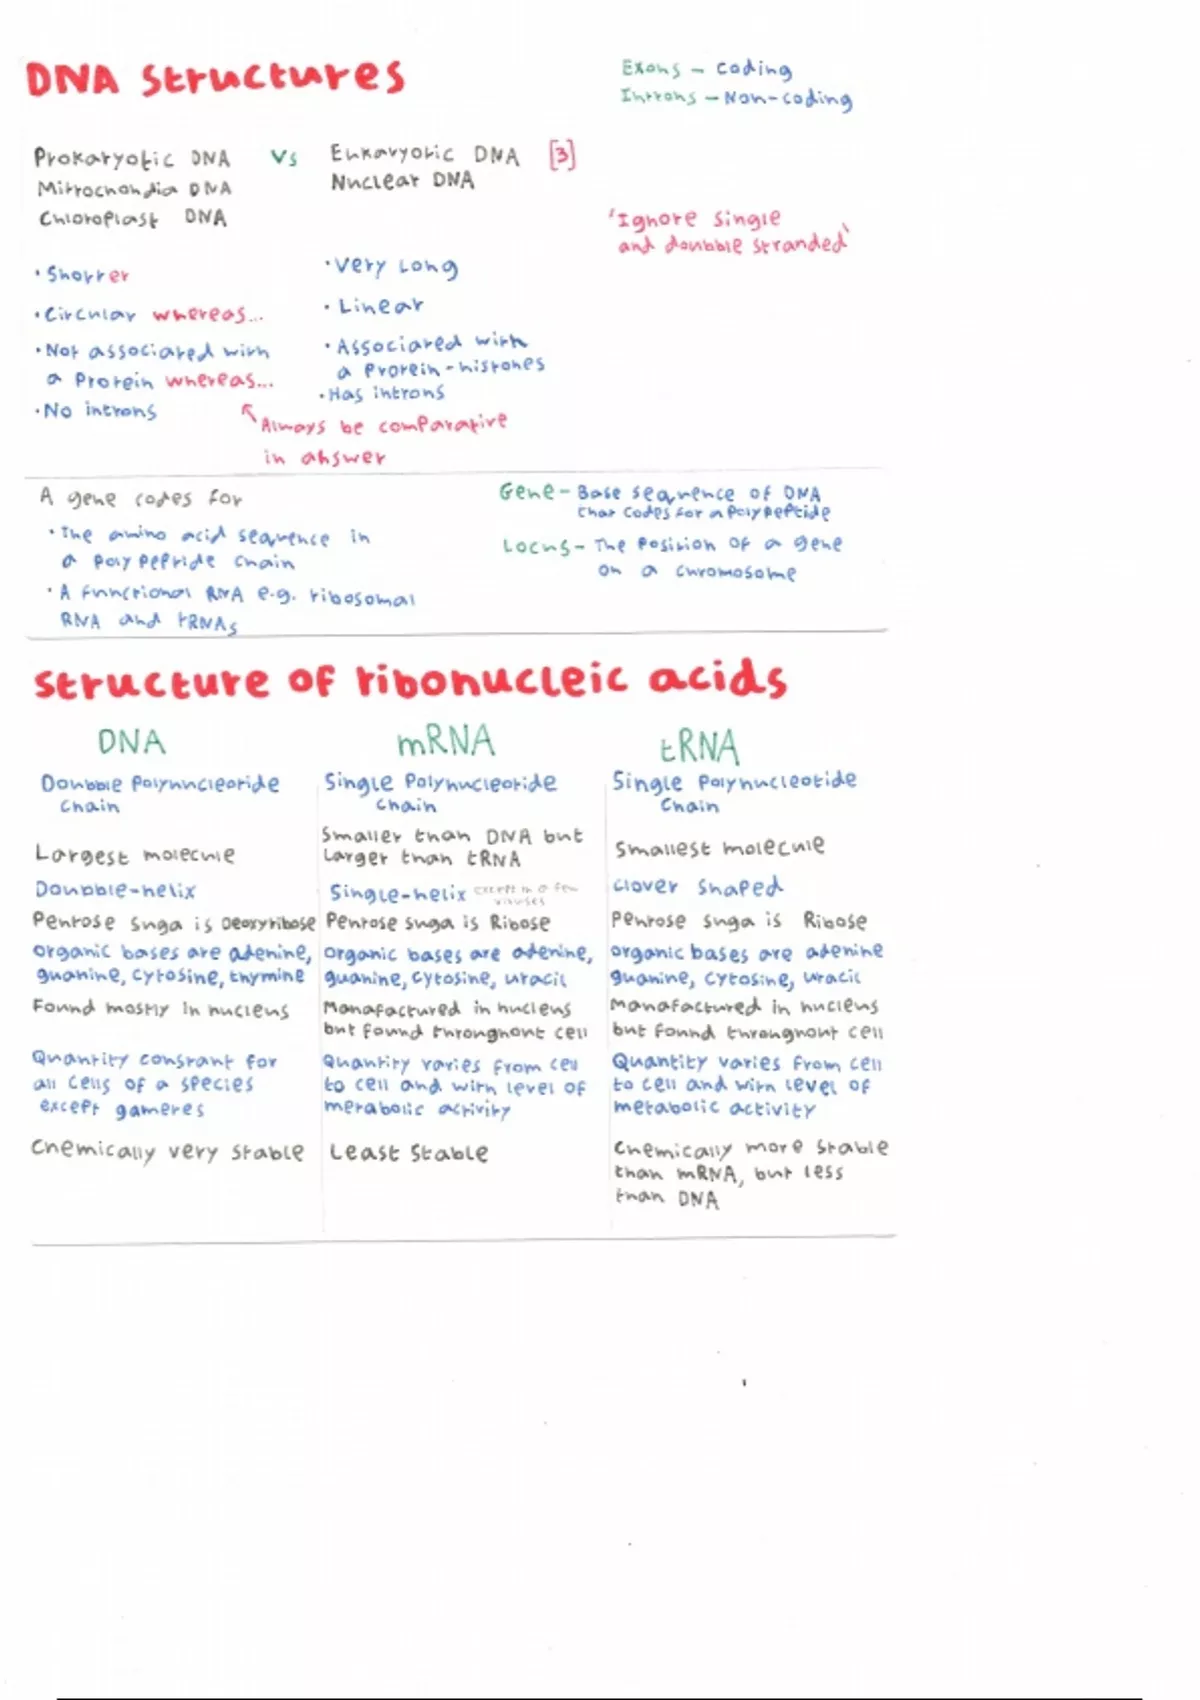 DNA Structures
Exons - coding
Introns - Non-coding
Prokaryotic DNA Vs Eukaryotic DNA [3]
Mitrochondia DNA Nuclear DNA
Chloroplast DNA
'Ignore single
and doubble stranded'
• Shorter
• Circular whereas...
• Not associated with
a Protein whereas...
• No introns
• Very Long
• Linear
• Associated with
a Protein - histones
• Has introns
Always be comparative
in answer
A gene codes for
• The amino acid sequence in
a polypeptide chain
• A functional RNA e.g. ribosomal
RNA and tRNAs
Gene - Base sequence of DNA
that codes for a polypeptide
Locus - The position of a gene
on a chromosome
Structure of ribonucleic acids
DNA
Doubble Polynucleotide
Chain
Largest molecule
Doubble-helix
Pentose suga is Deoxyribose
organic bases are adenine,
guanine, cytosine, thymine
Found mostly in nucleus
Quantity constant for
all cells of a species
except gametes
Chemically very stable
mRNA
Single Polynucleotide
Chain
Smaller than DNA but
Larger than tRNA
Single-helix except in a few
viruses
Pentose suga is Ribose
organic bases are adenine,
guanine, cytosine, uracil
Manafactured in nucleus
but found throughout cell
Quantity varies from cell
to cell and with level of
metabolic activity
Least Stable
tRNA
Single Polynucleotide
Chain
Smallest molecule
Clover shaped
Pentose suga is Ribose
organic bases are adenine
guanine, cytosine, uracil
Manafactured in nucleus
but found throughout cell
Quantity varies from cell
to cell and with level of
metabolic activity
Chemically more stable
than mRNA, but less
than DNA